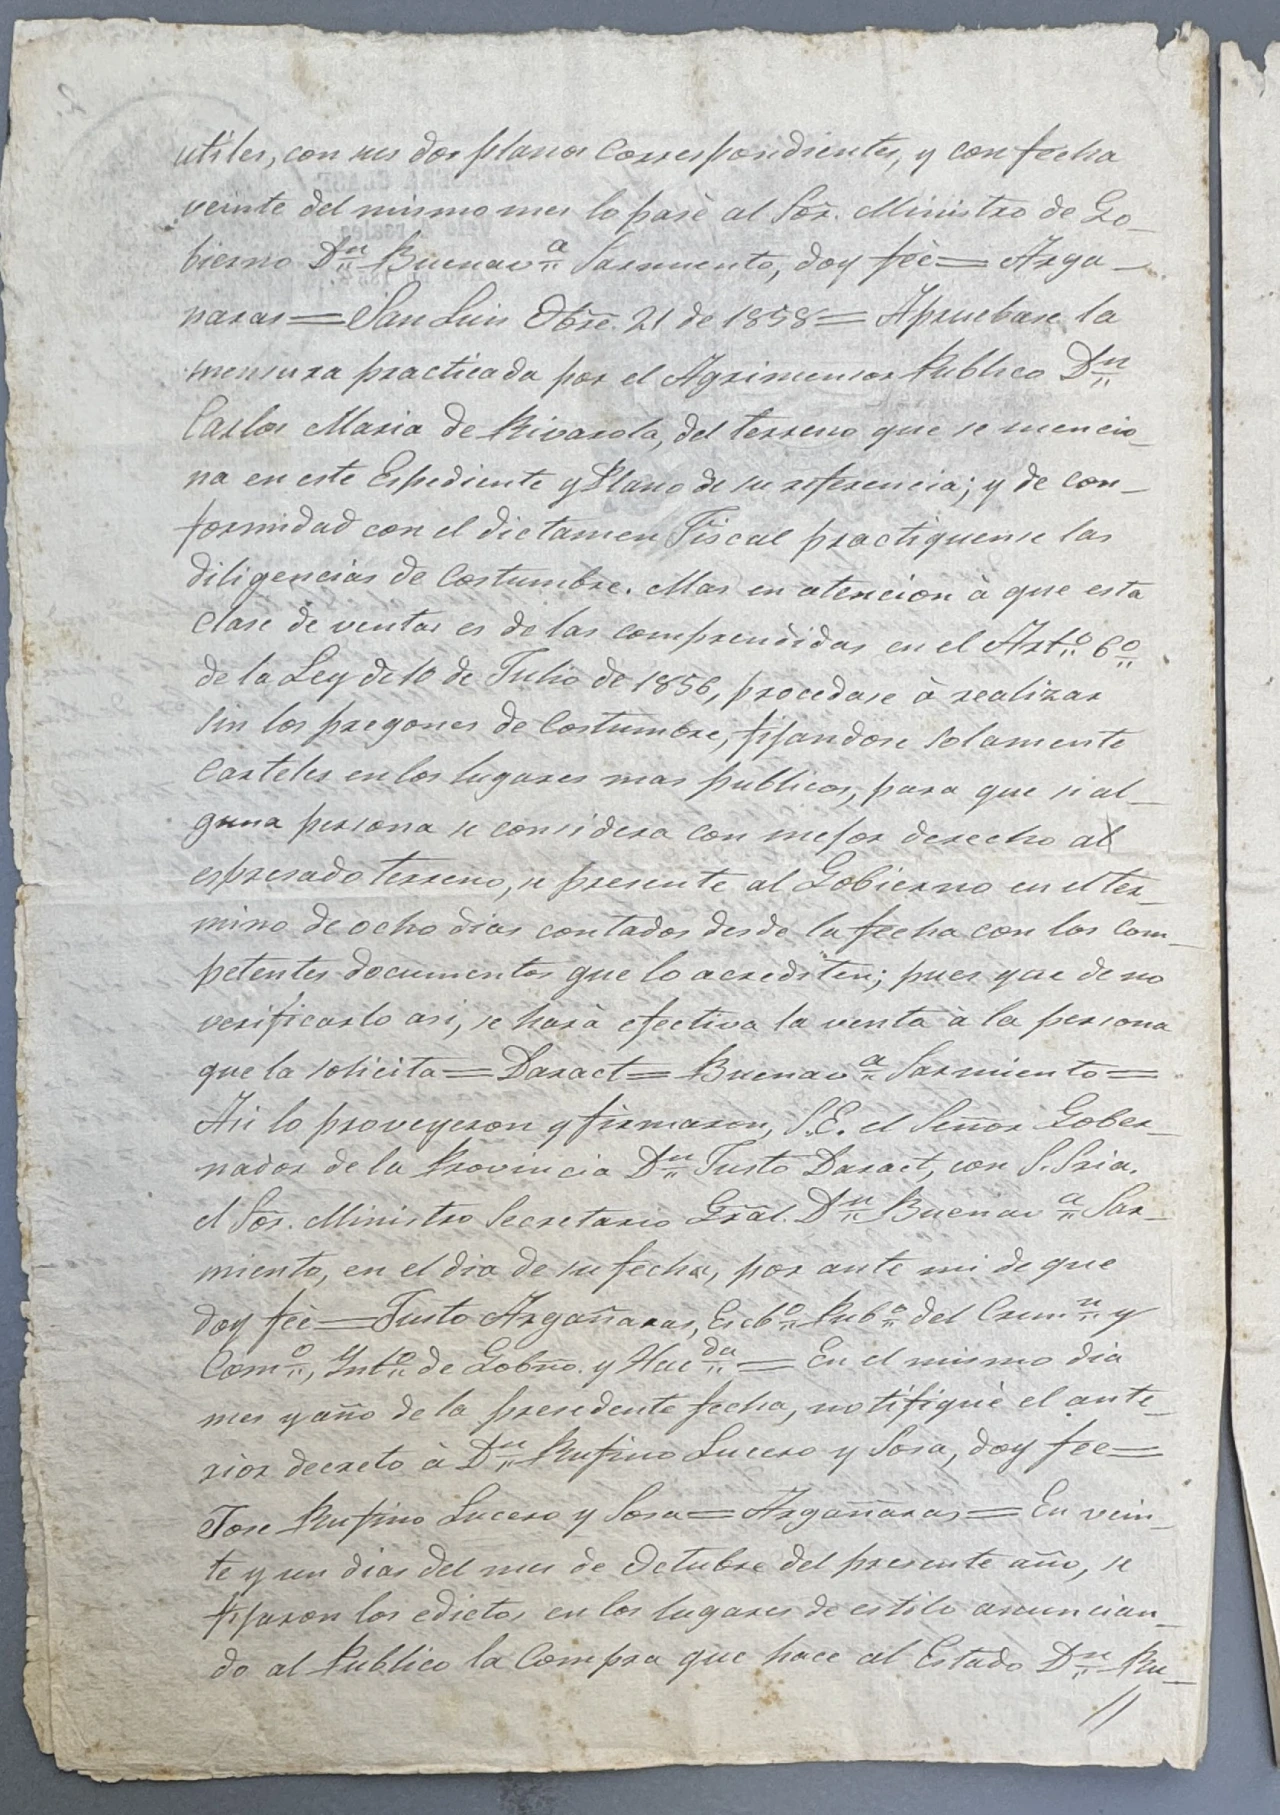 utiles, con sus dos planos correspondientes, y con fecha
veinte del mismo mes lo pasè al Sõr. Ministro de Go_
bierno Dⁿ Buenavᵃ Sarmiento, doy feè = Arga_
naras = San Luis Obre. 21 de 1858 = Apruebase la
mensura practicada por el Agrimensor Publico Dⁿ
Carlos Maria de Rivarola, del terreno que se mencio_
na en este Espediente y Plano de su referencia; y de con_
formidad con el dictamen Fiscal practiquense las
diligencias de costumbre. Mas en atencion à que esta
clase de ventas es de las comprendidas en el Artᵒ 6ᵒ
de la Ley de 10 de Julio de 1856, procedase à realizar
sin los pregones de costumbre, fijandose solamente
carteles en los lugares mas publicos, para que si al_
guna persona se considera con mejor derecho al
espresado terreno, se presente al Gobierno en el ter_
mino de ocho dias contados desde la fecha con los com_
petentes documentos que lo acrediten; pues que de no
verificarlo asi, se harà efectiva la venta à la persona
que la solicita = Daract = Buenavᵃ Sarmiento =
Asi lo proveyeron y firmaron, S.E. el Señor Gober_
nador de la Provincia Dⁿ Justo Daract, con S. Sria.
el Sõr. Ministro Secretario Grãl. Dⁿ Buenavᵃ Sar_
miento, en el dia de su fecha, por ante mi de que
doy feè = Justo Argañaras, Escbᵒ Pubᵒ del Crimⁿ y
Comᵒ, Yntᵒ de Gobño. y Hacᵈᵃ = En el mismo dia
mes y año de la presedente fecha, notifiquè el ante_
rior decreto à Dⁿ Rufino Lucero y Sosa, doy fee =
Jose Rufino Lucero y Sosa = Argañaras = En vein_
te y un dias del mes de Octubre del presente año, se
fijaron los edictos en los lugares de estilo anuncian_
do al Publico la Compra que hace al Estado Dⁿ Ru_
//